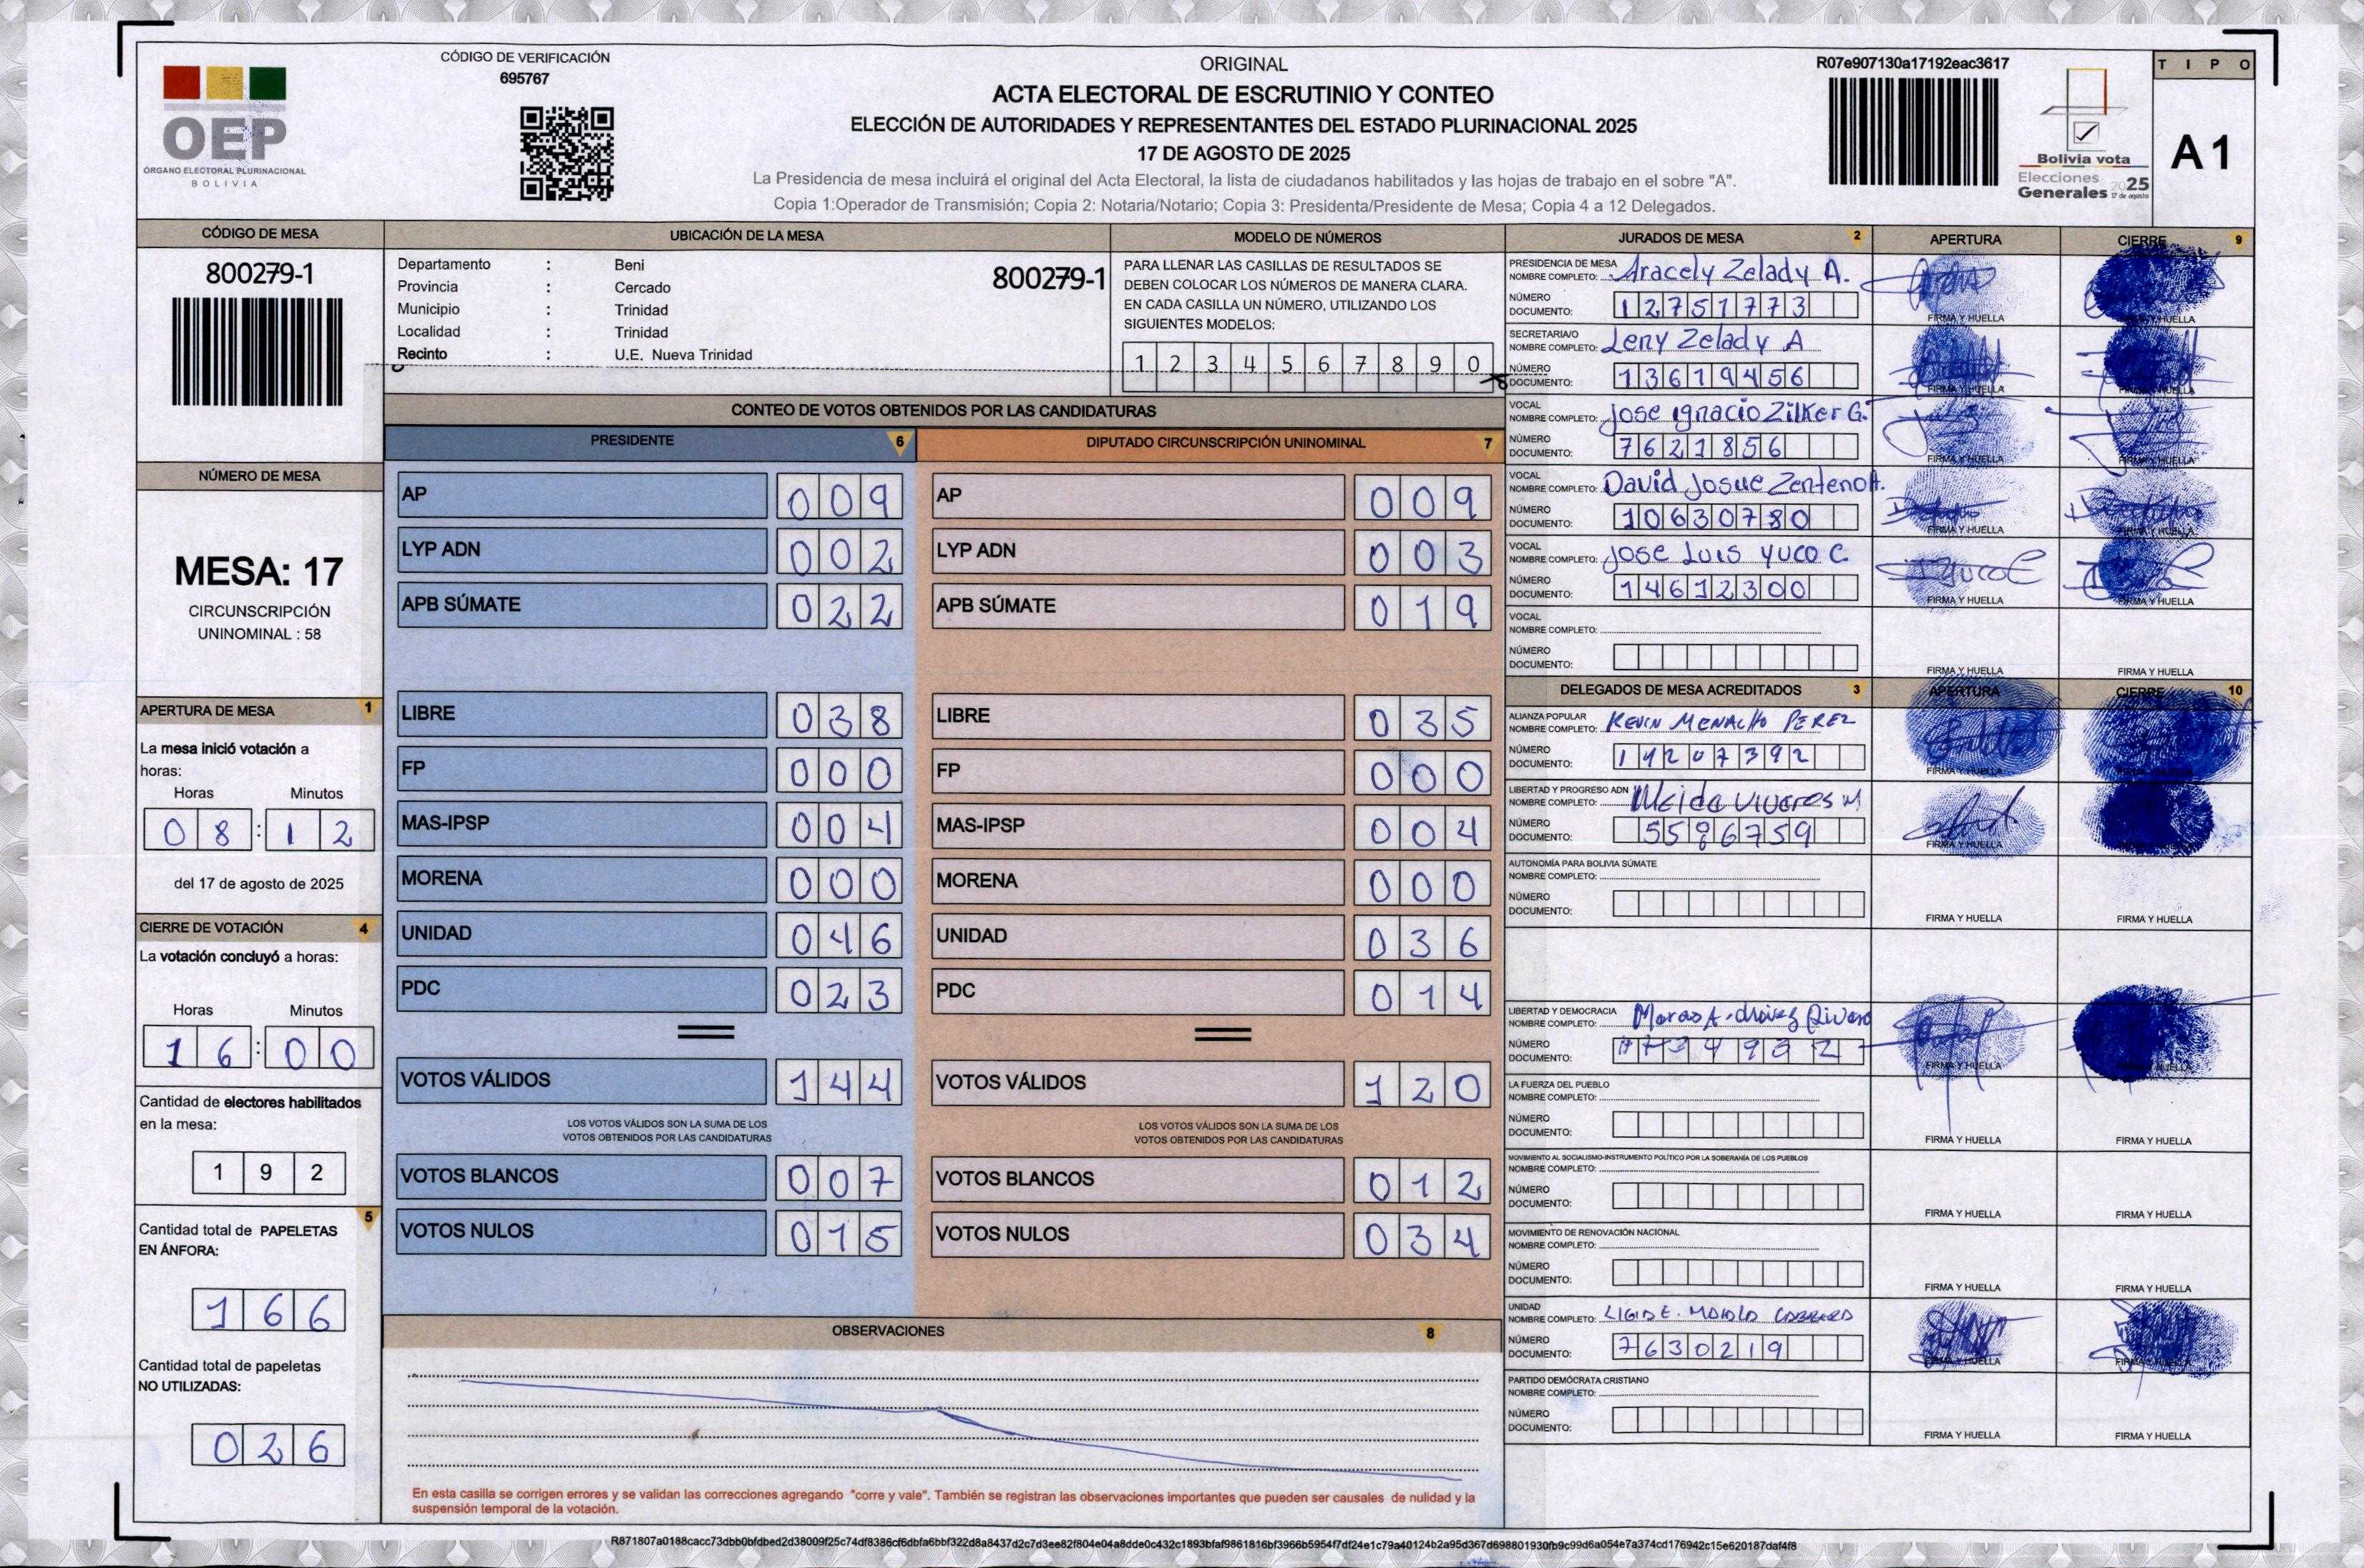 CÓDIGO DE VERIFICACIÓN
695767
OEP
ÓRGANO ELECTORAL PLURINACIONAL
BOLIVIA
ORIGINAL
ACTA ELECTORAL DE ESCRUTINIO Y CONTEO
ELECCIÓN DE AUTORIDADES Y REPRESENTANTES DEL ESTADO PLURINACIONAL 2025
17 DE AGOSTO DE 2025
La Presidencia de mesa incluirá el original del Acta Electoral, la lista de ciudadanos habilitados y las hojas de trabajo en el sobre "A".
Copia 1:Operador de Transmisión; Copia 2: Notaria/Notario; Copia 3: Presidenta/Presidente de Mesa; Copia 4 a 12 Delegados.
R07e907130a17192eac3617
Bolivia vota
Elecciones
Generales 2025
17 de agosto
TIPO
A 1
CÓDIGO DE MESA
800279-1
UBICACIÓN DE LA MESA
Departamento : Beni
Provincia : Cercado
Municipio : Trinidad
Localidad : Trinidad
Recinto : U.E. Nueva Trinidad
800279-1
MODELO DE NÚMEROS
PARA LLENAR LAS CASILLAS DE RESULTADOS SE
DEBEN COLOCAR LOS NÚMEROS DE MANERA CLARA.
EN CADA CASILLA UN NÚMERO, UTILIZANDO LOS
SIGUIENTES MODELOS:
1 2 3 4 5 6 7 8 9 0
NÚMERO DE MESA
MESA: 17
CIRCUNSCRIPCIÓN
UNINOMINAL : 58
APERTURA DE MESA 1
La mesa inició votación a
horas:
Horas Minutos
08:12
del 17 de agosto de 2025
CIERRE DE VOTACIÓN 4
La votación concluyó a horas:
Horas Minutos
16:00
Cantidad de electores habilitados
en la mesa:
192
5
Cantidad total de PAPELETAS
EN ÁNFORA:
166
Cantidad total de papeletas
NO UTILIZADAS:
026
CONTEO DE VOTOS OBTENIDOS POR LAS CANDIDATURAS
PRESIDENTE 6
AP 009
LYP ADN 002
APB SÚMATE 022
LIBRE 038
FP 000
MAS-IPSP 004
MORENA 000
UNIDAD 046
PDC 023
VOTOS VÁLIDOS 144
LOS VOTOS VÁLIDOS SON LA SUMA DE LOS
VOTOS OBTENIDOS POR LAS CANDIDATURAS
VOTOS BLANCOS 007
VOTOS NULOS 015
DIPUTADO CIRCUNSCRIPCIÓN UNINOMINAL 7
AP 009
LYP ADN 003
APB SÚMATE 019
LIBRE 035
FP 000
MAS-IPSP 004
MORENA 000
UNIDAD 036
PDC 014
VOTOS VÁLIDOS 120
LOS VOTOS VÁLIDOS SON LA SUMA DE LOS
VOTOS OBTENIDOS POR LAS CANDIDATURAS
VOTOS BLANCOS 012
VOTOS NULOS 034
OBSERVACIONES 8
En esta casilla se corrigen errores y se validan las correcciones agregando "corre y vale". También se registran las observaciones importantes que pueden ser causales de nulidad y la
suspensión temporal de la votación.
JURADOS DE MESA 2 APERTURA CIERRE 9
PRESIDENCIA DE MESA
NOMBRE COMPLETO: Aracely Zelady A.
NÚMERO
DOCUMENTO: 12751773
FIRMA Y HUELLA FIRMA Y HUELLA
SECRETARIA/O
NOMBRE COMPLETO: Leny Zelady A
NÚMERO
DOCUMENTO: 13619456
FIRMA Y HUELLA FIRMA Y HUELLA
VOCAL
NOMBRE COMPLETO: Jose Ignacio Zilker G.
NÚMERO
DOCUMENTO: 7621856
FIRMA Y HUELLA FIRMA Y HUELLA
VOCAL
NOMBRE COMPLETO: David Josue Zenteno A.
NÚMERO
DOCUMENTO: 10630780
FIRMA Y HUELLA FIRMA Y HUELLA
VOCAL
NOMBRE COMPLETO: Jose Luis Yuco C.
NÚMERO
DOCUMENTO: 14612300
FIRMA Y HUELLA FIRMA Y HUELLA
VOCAL
NOMBRE COMPLETO:
NÚMERO
DOCUMENTO:
FIRMA Y HUELLA FIRMA Y HUELLA
DELEGADOS DE MESA ACREDITADOS 3 APERTURA CIERRE 10
ALIANZA POPULAR
NOMBRE COMPLETO: KEVIN MENACHO PEREZ
NÚMERO
DOCUMENTO: 14207392
FIRMA Y HUELLA
LIBERTAD Y PROGRESO ADN
NOMBRE COMPLETO: Viveros M
NÚMERO
DOCUMENTO: 5596759
FIRMA Y HUELLA
AUTONOMÍA PARA BOLIVIA SÚMATE
NOMBRE COMPLETO:
NÚMERO
DOCUMENTO:
FIRMA Y HUELLA FIRMA Y HUELLA
LIBERTAD Y DEMOCRACIA
NOMBRE COMPLETO:
NÚMERO
DOCUMENTO:
FIRMA Y HUELLA FIRMA Y HUELLA
LA FUERZA DEL PUEBLO
NOMBRE COMPLETO:
NÚMERO
DOCUMENTO:
FIRMA Y HUELLA FIRMA Y HUELLA
MOVIMIENTO AL SOCIALISMO-INSTRUMENTO POLÍTICO POR LA SOBERANÍA DE LOS PUEBLOS
NOMBRE COMPLETO:
NÚMERO
DOCUMENTO:
FIRMA Y HUELLA FIRMA Y HUELLA
MOVIMIENTO DE RENOVACIÓN NACIONAL
NOMBRE COMPLETO:
NÚMERO
DOCUMENTO:
FIRMA Y HUELLA FIRMA Y HUELLA
UNIDAD
NOMBRE COMPLETO:
NÚMERO
DOCUMENTO: 7630219
FIRMA Y HUELLA FIRMA Y HUELLA
PARTIDO DEMÓCRATA CRISTIANO
NOMBRE COMPLETO:
NÚMERO
DOCUMENTO:
FIRMA Y HUELLA FIRMA Y HUELLA